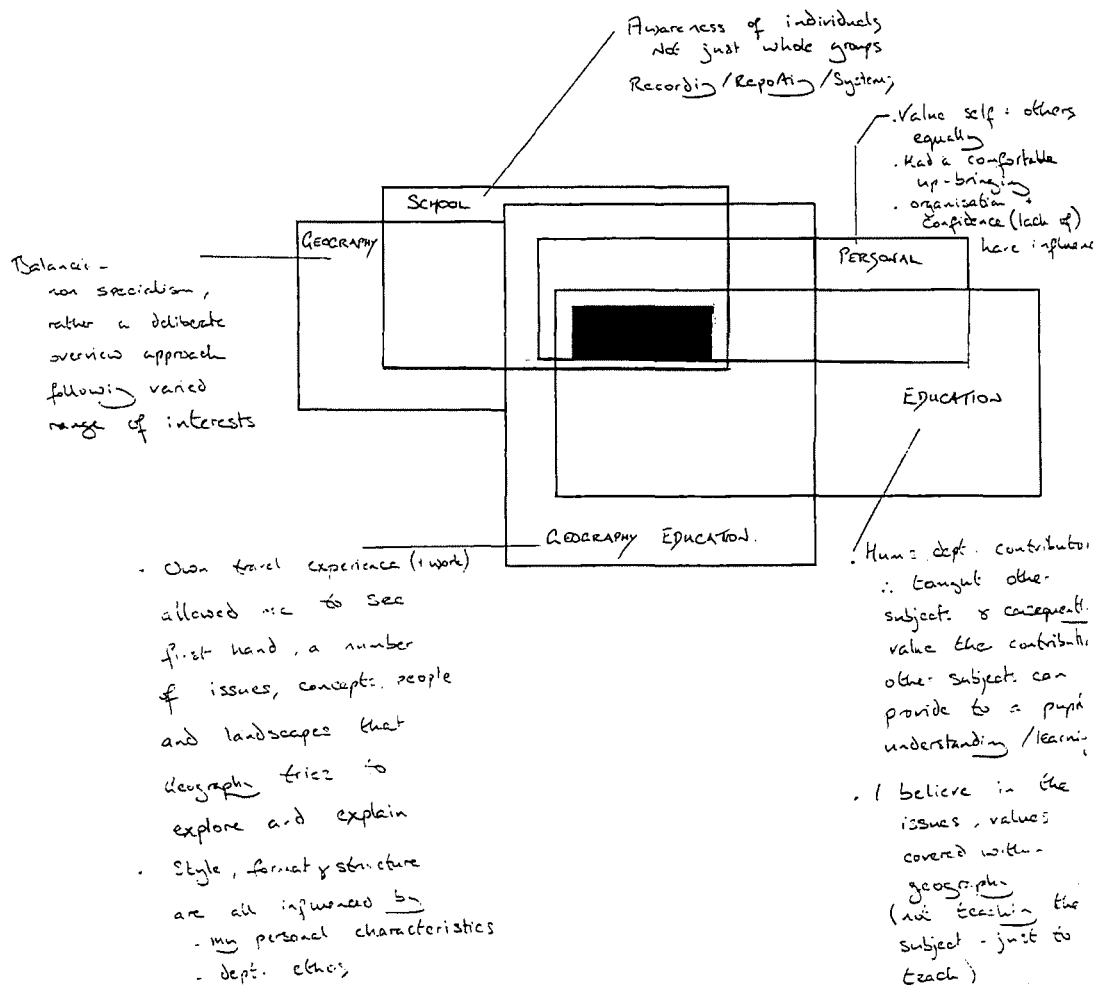 Awareness of individuals
Not just whole groups
Recording/Reporting/Systems
. Value self + others
equally
. Had a comfortable
up-bringing
. organisation +
confidence (lack of)
have influenc
SCHOOL
GEOGRAPHY
PERSONAL
Balance -
non specialism,
rather a deliberate
overview approach
following varied
range of interests
EDUCATION
GEOGRAPHY EDUCATION.
. Own travel experience (+ work)
allowed me to see
first hand, a number
of issues, concepts, people
and landscapes that
Geography tries to
explore and explain
. Style, format & structure
are all influenced by
- my personal characteristics
- dept. ethos
. Hums dept. contributor
∴ taught other
subjects & consequentl
value the contributi
other subjects can
provide to a pupil
understanding/learnin
. I believe in the
issues, values
covered within
geography
(not teaching the
subject - just to
teach)